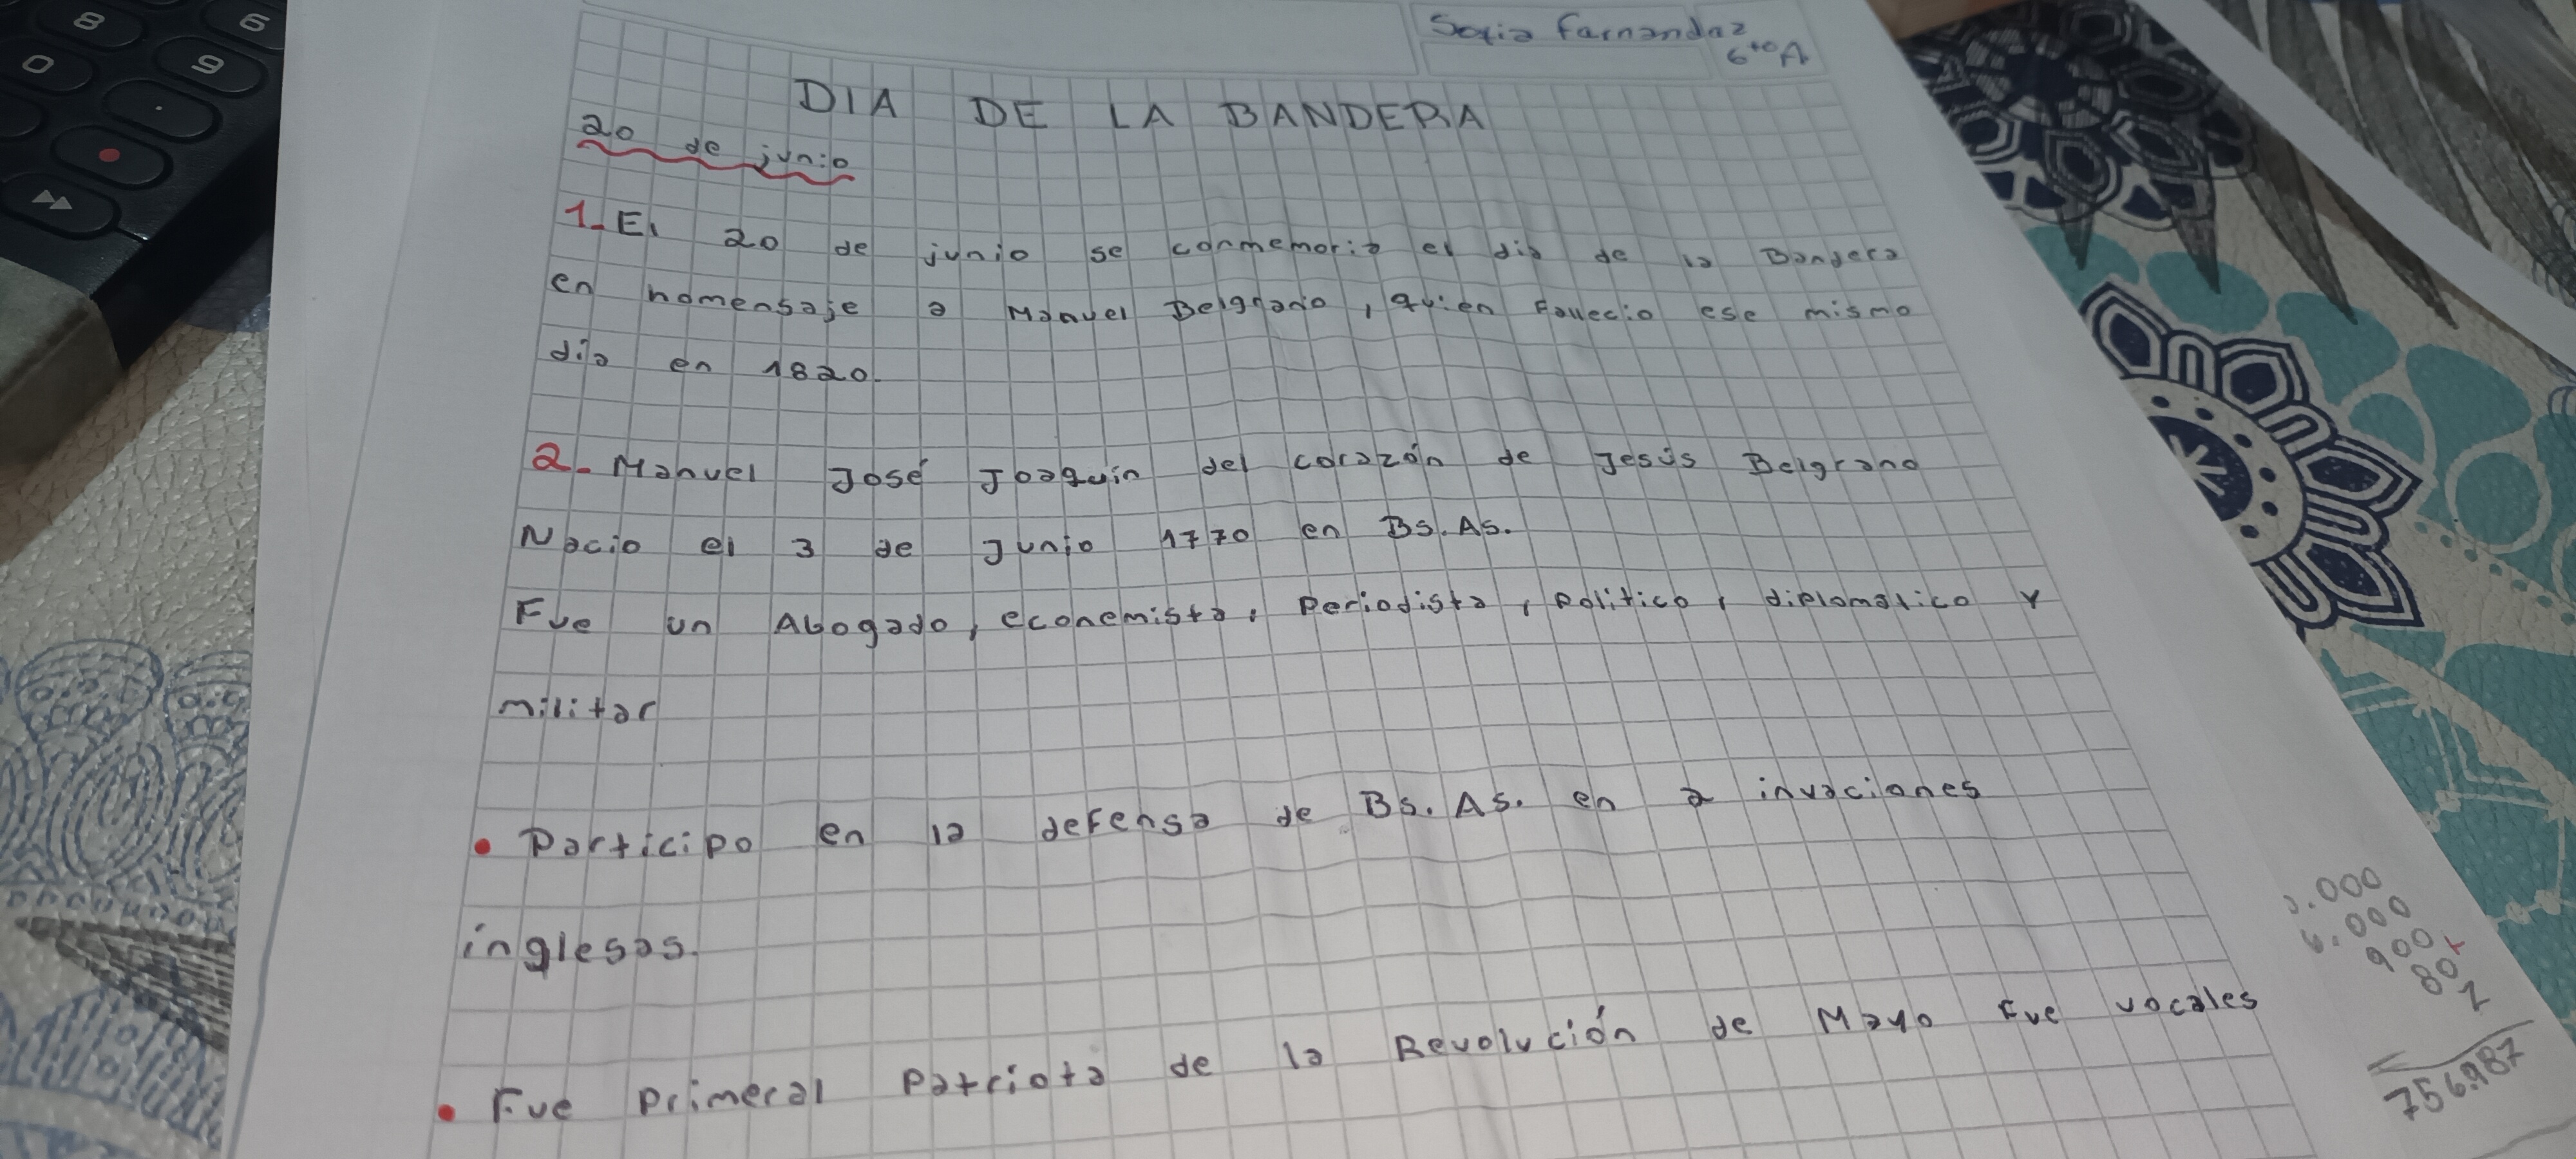 8
6
0
9
Sofia Farnandaz
6to A
DIA DE LA BANDERA
20 de junio
1. El 20 de junio se conmemoria el dia de la Bandera
en homensaje a Manuel Belgrano, quien Fallecio ese mismo
dia en 1820.
2. Manuel José Joaquin del corazón de Jesús Belgrano
Nacio el 3 de Junio 1770 en Bs. As.
Fue un Abogado, econemista, Periodista, Politico, diplomatico Y
militar
• Participo en la defensa de Bs. As. en 2 invaciones
inglesas.
• Fue Primeral Patriota de la Revolución de Mayo Fue vocales
.000
6.000
900
80
756.987